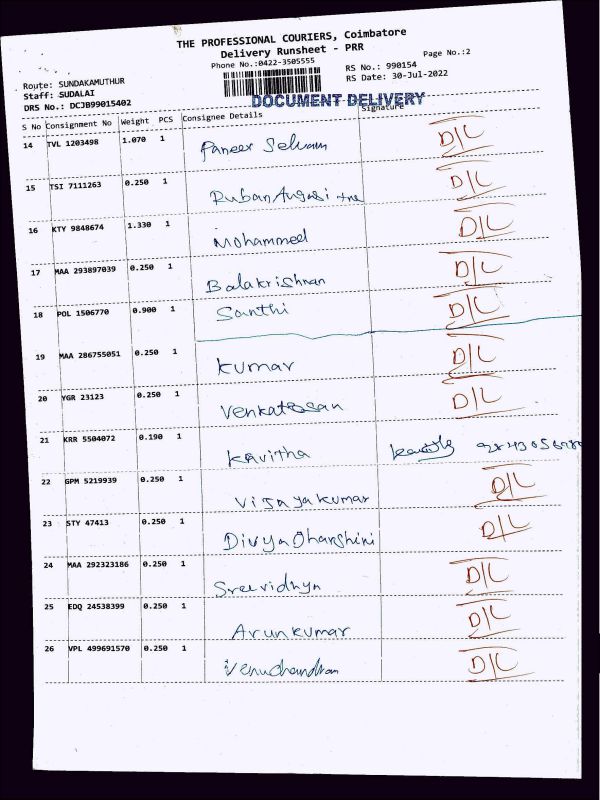 THE PROFESSIONAL COURIERS, Coimbatore
Delivery Runsheet - PRR
Phone No.:0422-3505555
Page No.:2
Route: SUNDAKAMUTHUR
RS No.: 990154
Staff: SUDALAI
RS Date: 30-Jul-2022
DRS No.: DCJB99015402
DOCUMENT DELIVERY
S No Consignment No Weight PCS Consignee Details Signature
14 TVL 1203498 1.070 1 Paneer Selvam D/L
15 TSI 7111263 0.250 1 Ruban D/L
16 KTY 9848674 1.330 1 Mohammed D/L
17 MAA 293897039 0.250 1 Balakrishnan D/L
18 POL 1506770 0.900 1 Santhi D/L
19 MAA 286755051 0.250 1 Kumar D/L
20 YGR 23123 0.250 1 Venkatesan D/L
21 KRR 5504072 0.190 1 Kavitha
22 GPM 5219939 0.250 1 Vijayakumar D/L
23 STY 47413 0.250 1 DivyaDharshini D/L
24 MAA 292323186 0.250 1 Sreevidhya D/L
25 EDQ 24538399 0.250 1 Arunkumar D/L
26 VPL 499691570 0.250 1 Venuchandran D/L